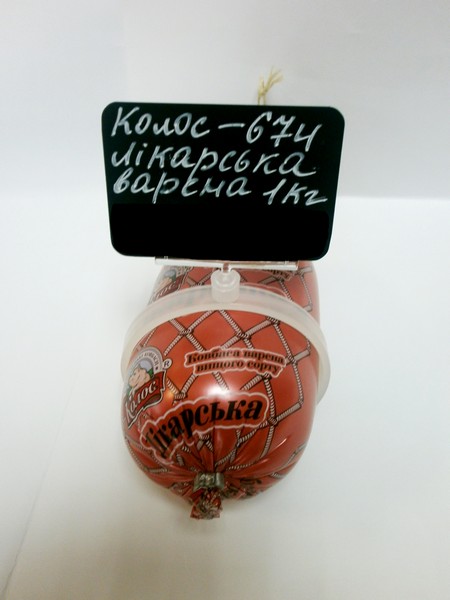 Колос - 674
лікарська
варена 1кг
Ковбаса варена
вищого сорту
Колос
Лікарська